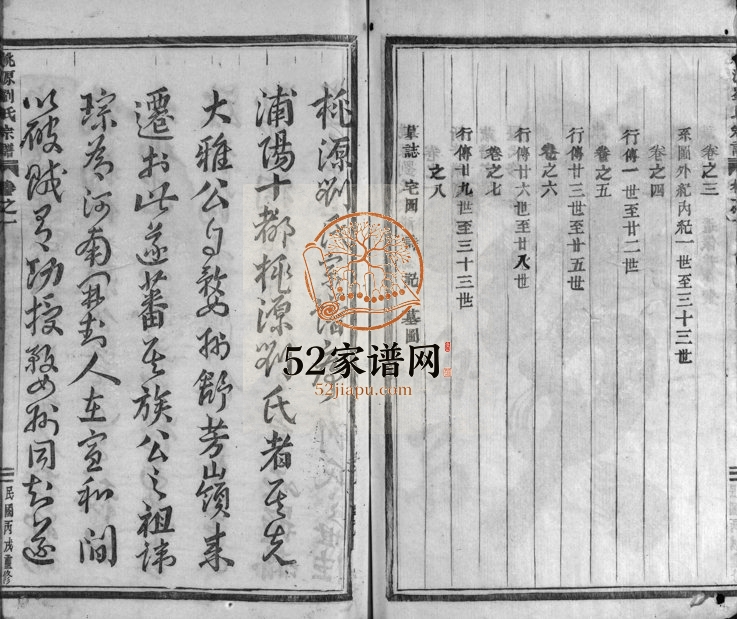 卷之三
系圖外紀內紀一世至三十三世
卷之四
行傳一世至廿二世
卷之五
行傳廿三世至廿五世
卷之六
行傳廿六世至廿八世
卷之七
行傳廿九世至三十三世
卷之八
墓誌 宅圖 記 墓圖
桃源劉氏宗譜
浦陽十都桃源劉氏者其先
大雅公自婺州舒芳山嶺來
遷於此遂蕃其族公之祖諱
琮為河南開封人在宣和間
以破賊有功授婺州同知遂
桃源劉氏宗譜 卷之一
民國丙戌重修
52家谱网
52jiapu.com